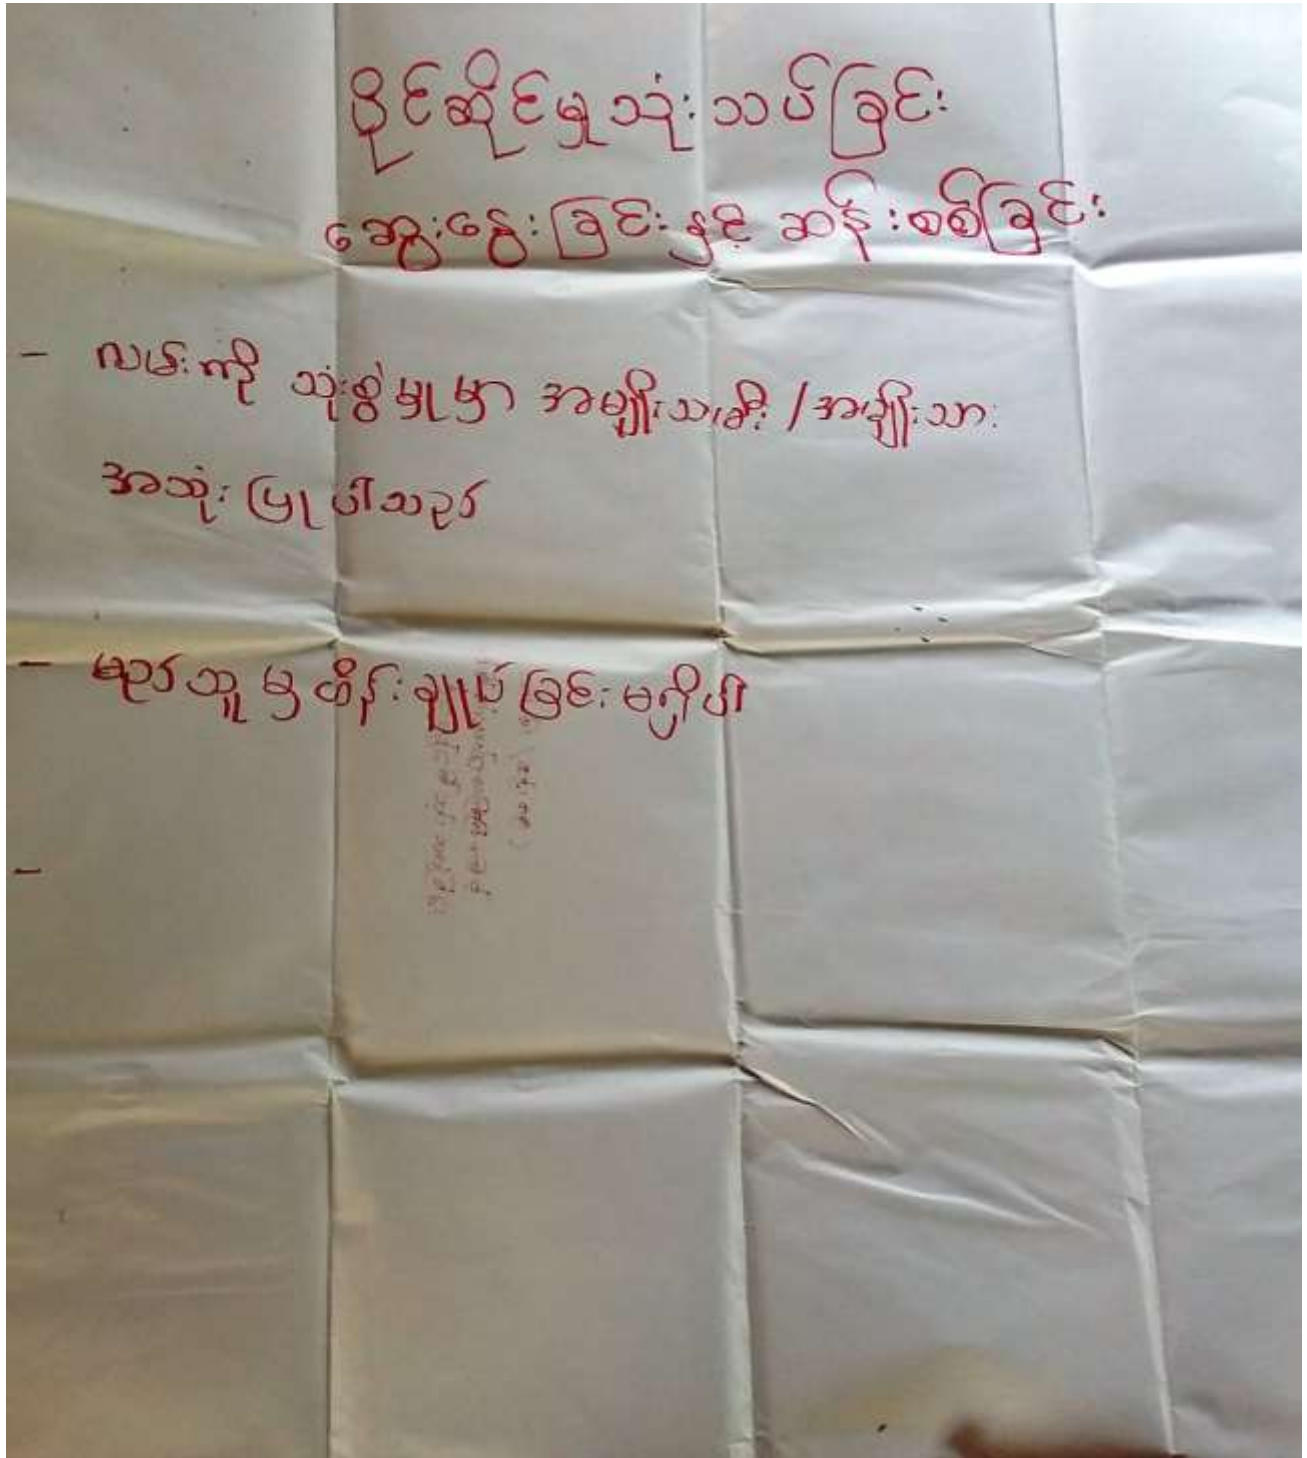 ပိုင်ဆိုင်မှုသုံးသပ်ခြင်း
ဆွေးနွေးခြင်းနှင့် ဆန်းစစ်ခြင်း
- လမ်းကို သုံးစွဲမှုမှာ အမျိုးသမီး / အမျိုးသား
အသုံးပြုပါသည်
- မည်သူမှ ထိန်းချုပ်ခြင်းမရှိပါ
-